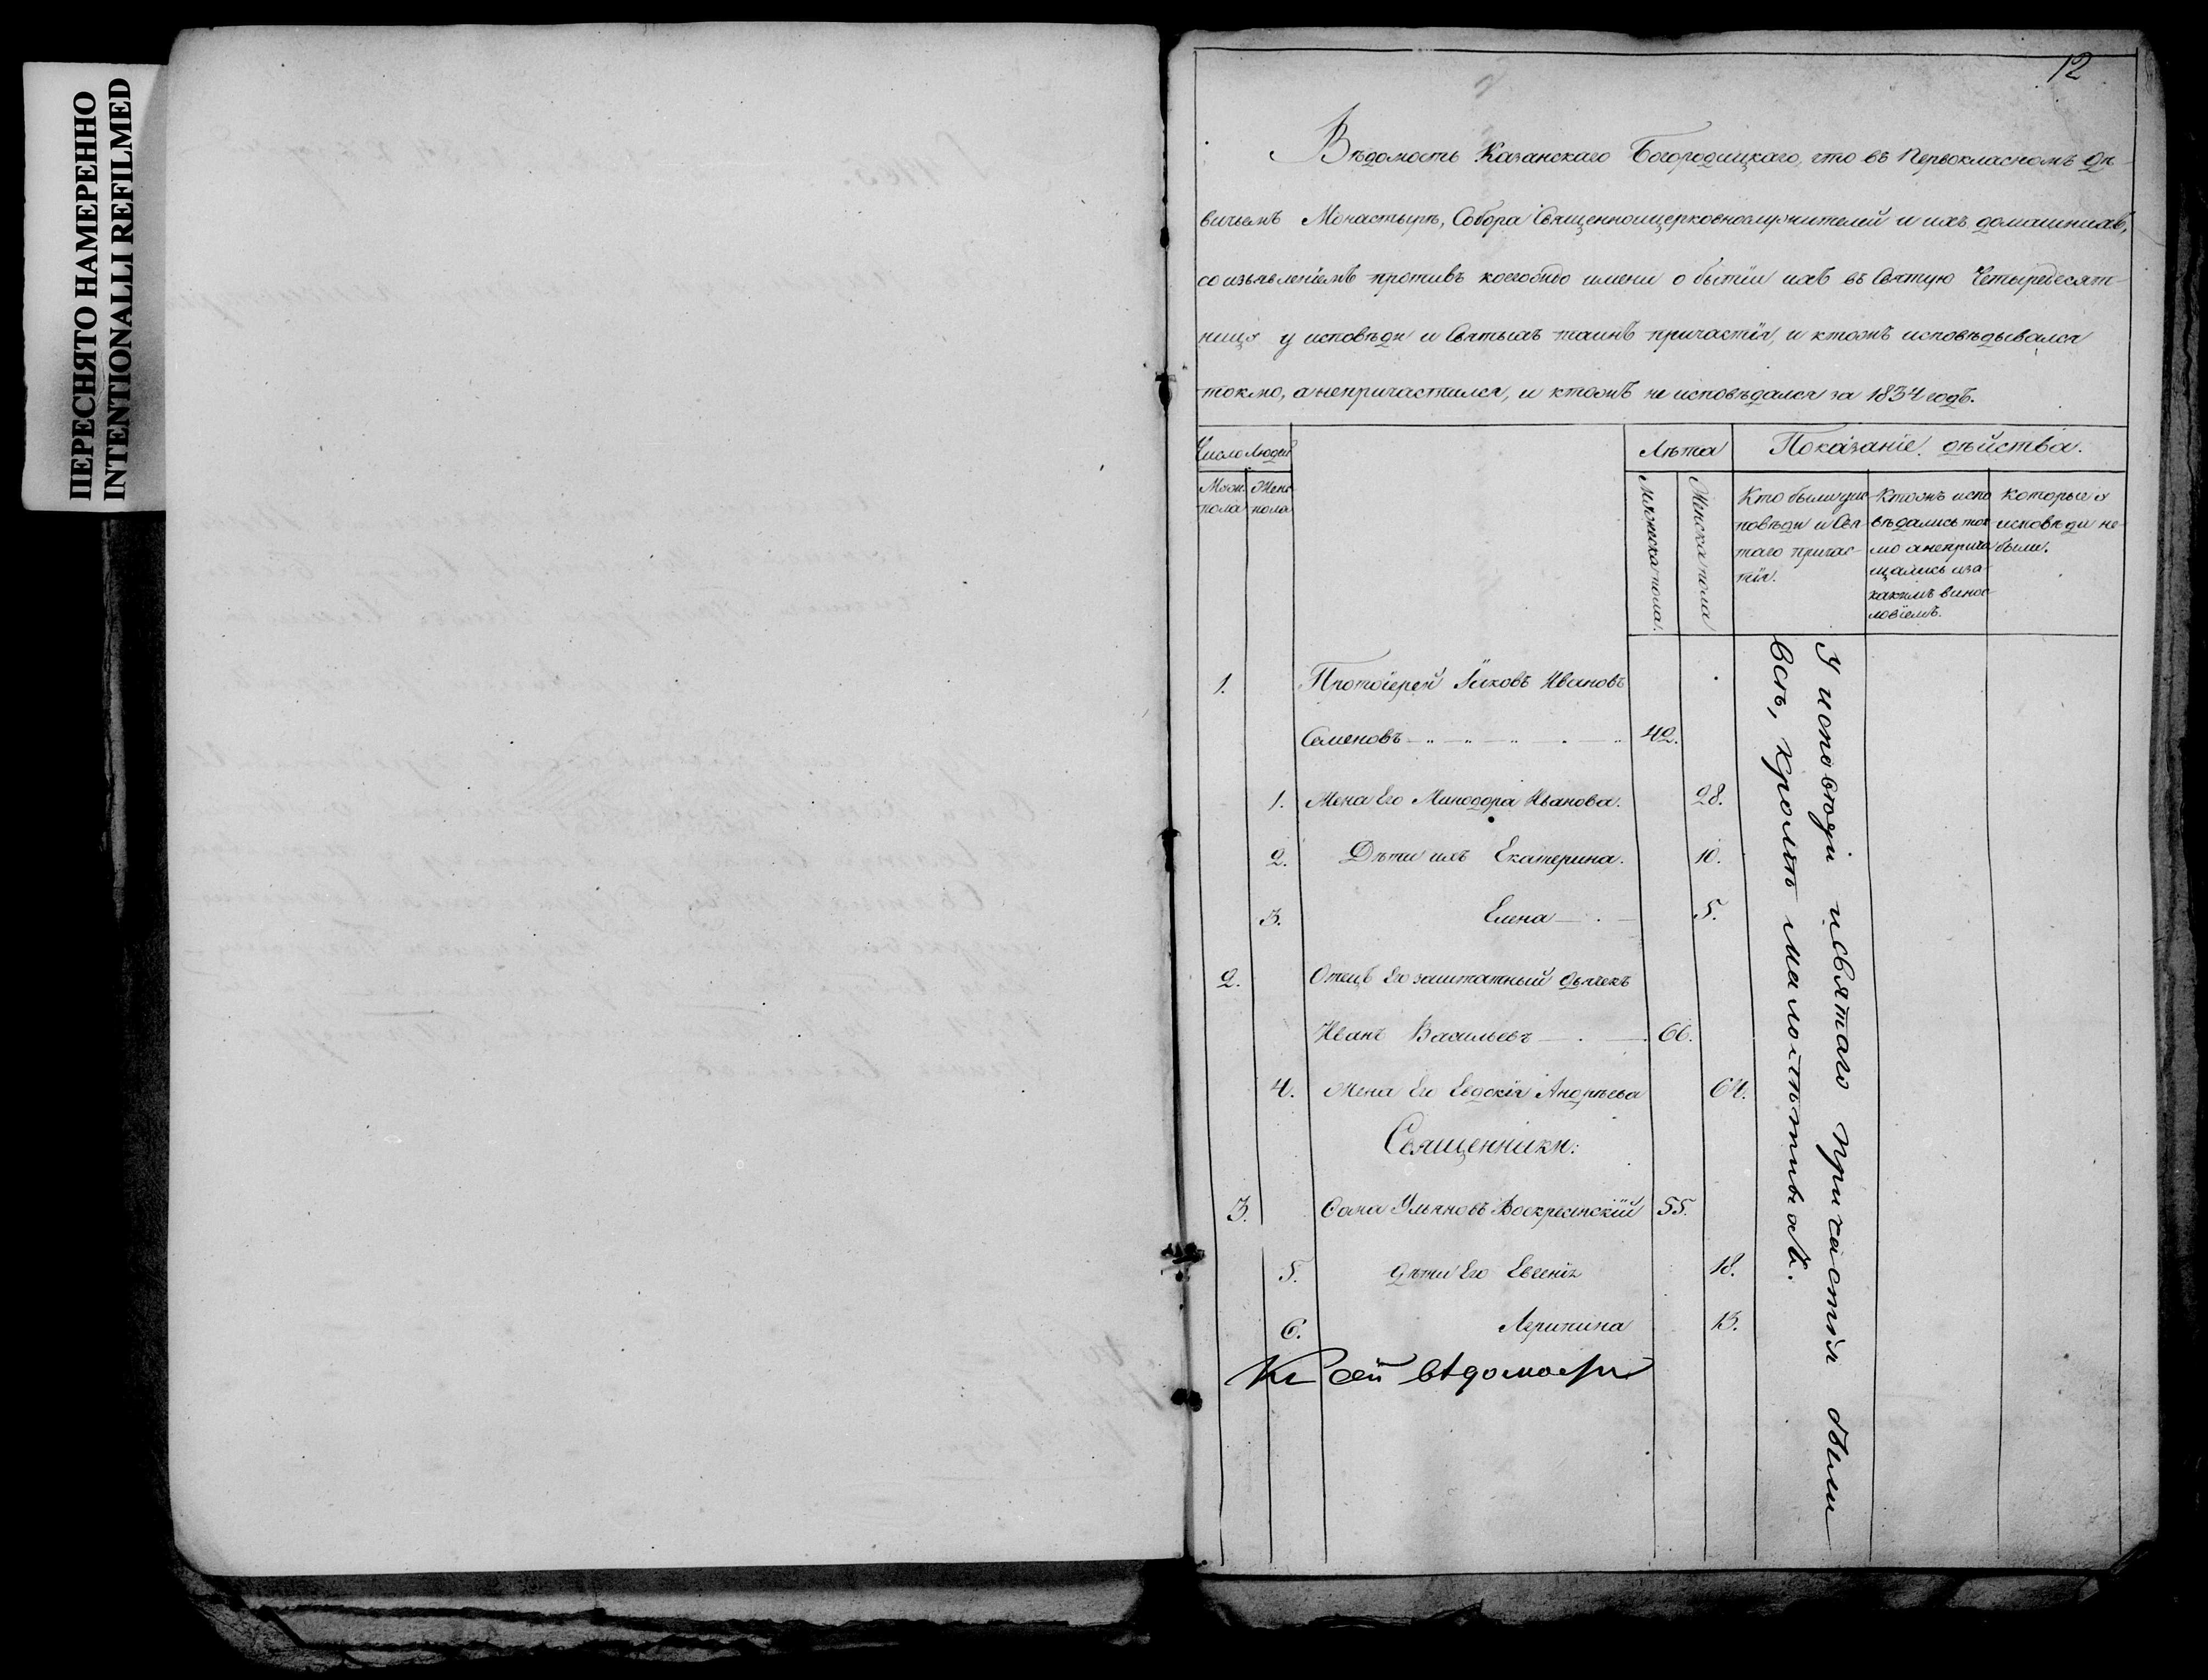 ПЕРЕСНЯТО НАМЕРЕННО
INTENTIONALLI REFILMED
12
Вѣдомость Казанскаго Богородицкаго, что въ Первокласномъ Дѣ-
вичьемъ Монастырѣ, Собора Священноицерковнослужителей и ихъ домашнихъ,
со изъявленіемъ противъ коегождо имени о бытіи ихъ въ Святую Четыредесят-
ницу у исповѣди и Святыхъ таинъ причастія, и ктожъ исповѣдывался
токмо, а непричастился, и ктожъ не исповѣдался за 1834 годъ.
Число людей
Лѣта
Показаніе дѣйства.
Муж. пола
Женс. пола
Мужска пола.
Женска пола
Кто были у ис-
повѣди и Свя-
таго причас-
тія.
Ктожъ испо
вѣдались ток
мо а неприча
щались и за
какимъ винос
ловіемъ.
которые у
исповѣди не-
были.
1. Протоіерей Іаковъ Ивановъ
Семеновъ 42.
1. Жена Его Минодора Иванова. 28.
2. Дѣти ихъ Екатерина. 10.
3. Елена 5.
2. Отецъ Его заштатный дьячекъ
Иванъ Васильевъ 66.
4. Жена Его Евдокія Андрѣева 64.
Священники:
3. Ѳома Ульяновъ Воскресенскій 55.
5. Дѣти Его Евгенія 18.
6. Агрипина 13.
У исповѣди и святаго причастія были
всѣ, кромѣ малолѣтныхъ.
Къ сей вѣдомости